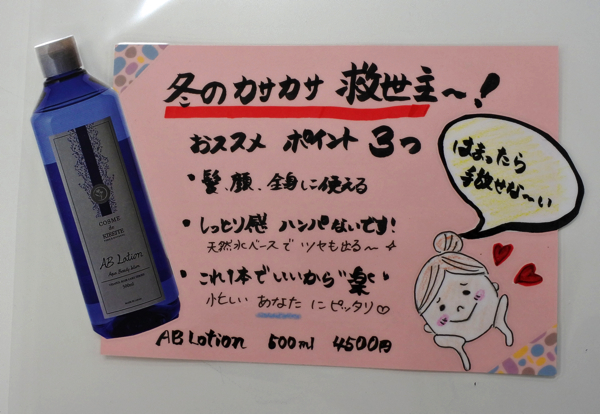 冬のカサカサ 救世主〜!
おススメ ポイント 3つ
・髪、顔、全身に使える
・しっとり感 ハンパないです!
天然水ベースで ツヤも出る〜
・これ1本でいいから"楽"
忙しい あなた にピッタリ♡
AB Lotion 500ml 4500円
はまったら
手放せな〜い
COSME
de
AB Lotion